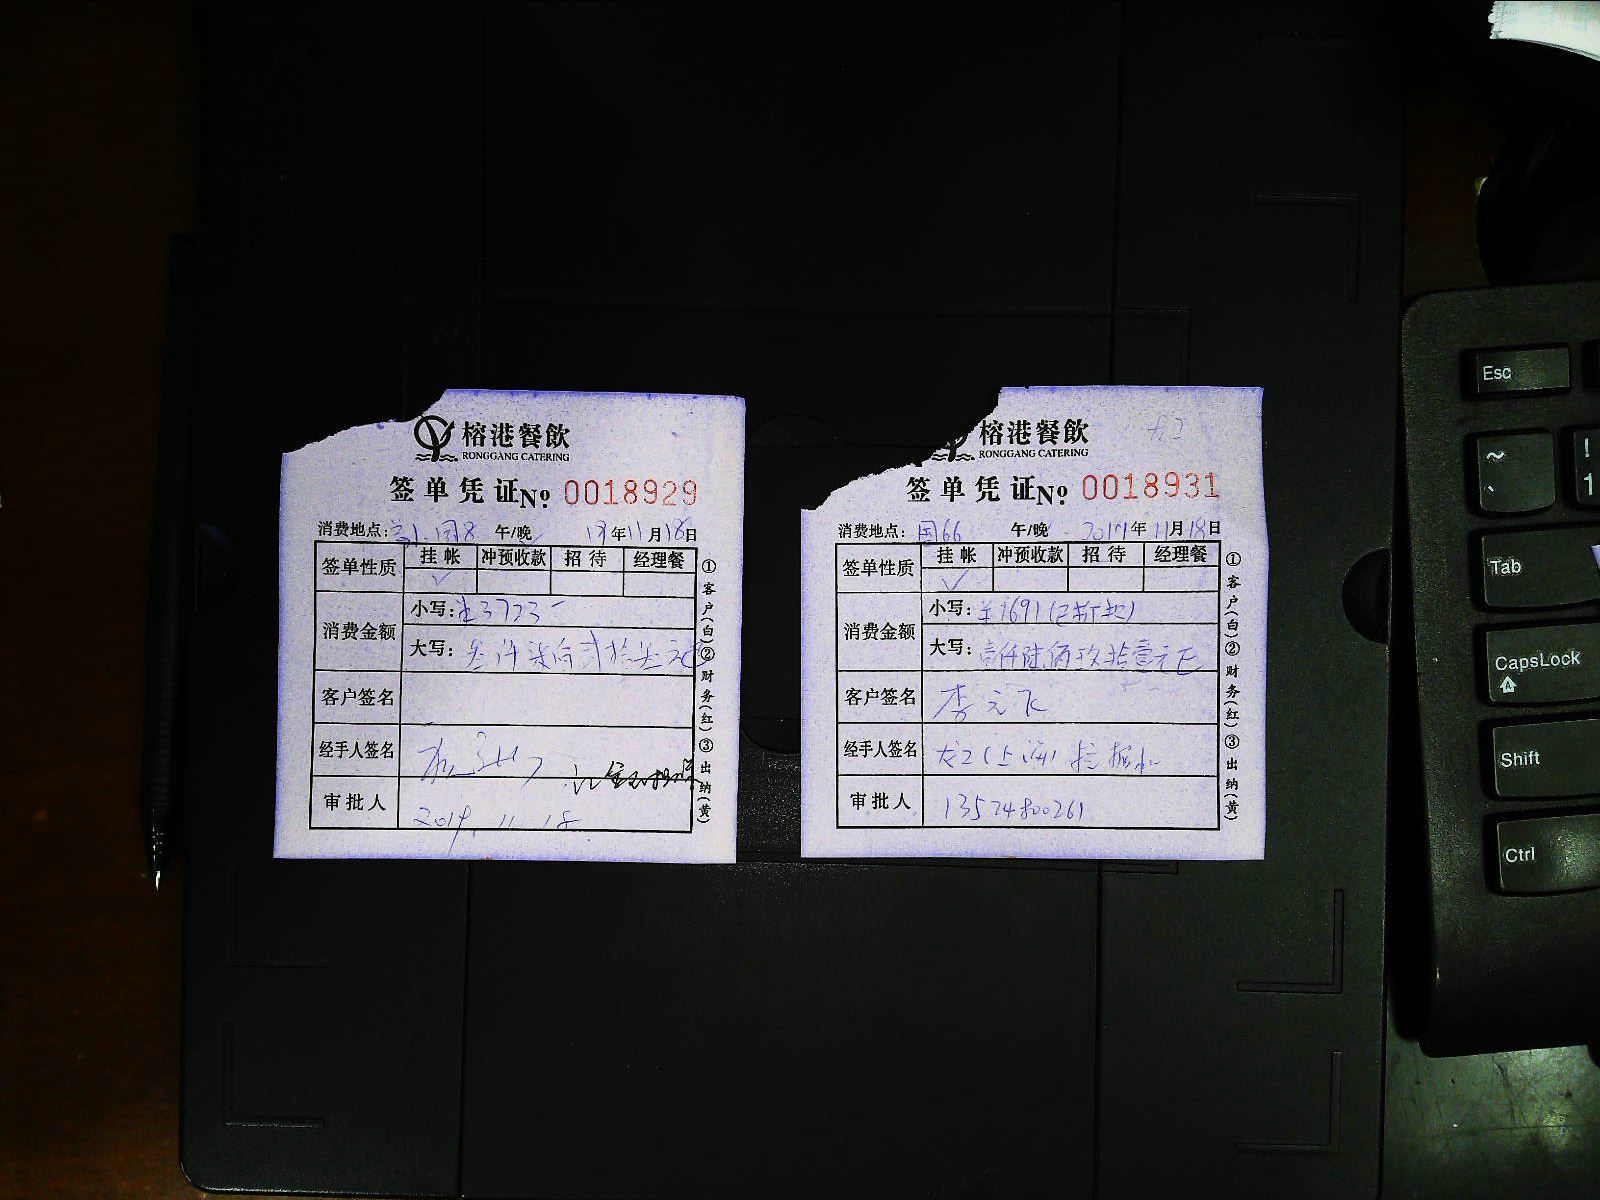 榕港餐飲
RONGGANG CATERING
签单凭证№ 0018929
消费地点: 国8 午/晚 19年11月18日
签单性质 挂帐 冲预收款 招待 经理餐
✓
消费金额
小写: ¥3723-
大写: 叁仟柒佰贰拾叁元
客户签名
经手人签名
审批人
2019.11.18
①客户(白)②财务(红)③出纳(黄)
榕港餐飲
RONGGANG CATERING
签单凭证№ 0018931
消费地点: 国66 午/晚 2019年11月18日
签单性质 挂帐 冲预收款 招待 经理餐
✓
消费金额
小写: ¥1691(已折扣)
大写: 壹仟陆佰玖拾壹元正
客户签名 李元飞
经手人签名 龙工(上海)
审批人 13574800261
①客户(白)②财务(红)③出纳(黄)
Esc
~
`
!
1
Tab
CapsLock
Shift
Ctrl